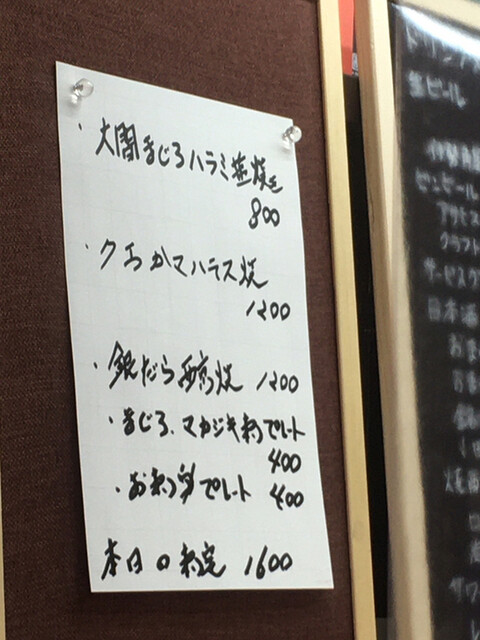 ・大間まぐろハラミ塩焼き
800
・クエカマハラス焼
1200
・銀だら西京焼 1200
・まぐろ、マカジキ刺プレート
400
・お刺身プレート 400
本日の刺定 1600
生ビール
ビンビール
アサヒス
クラフト
日本酒